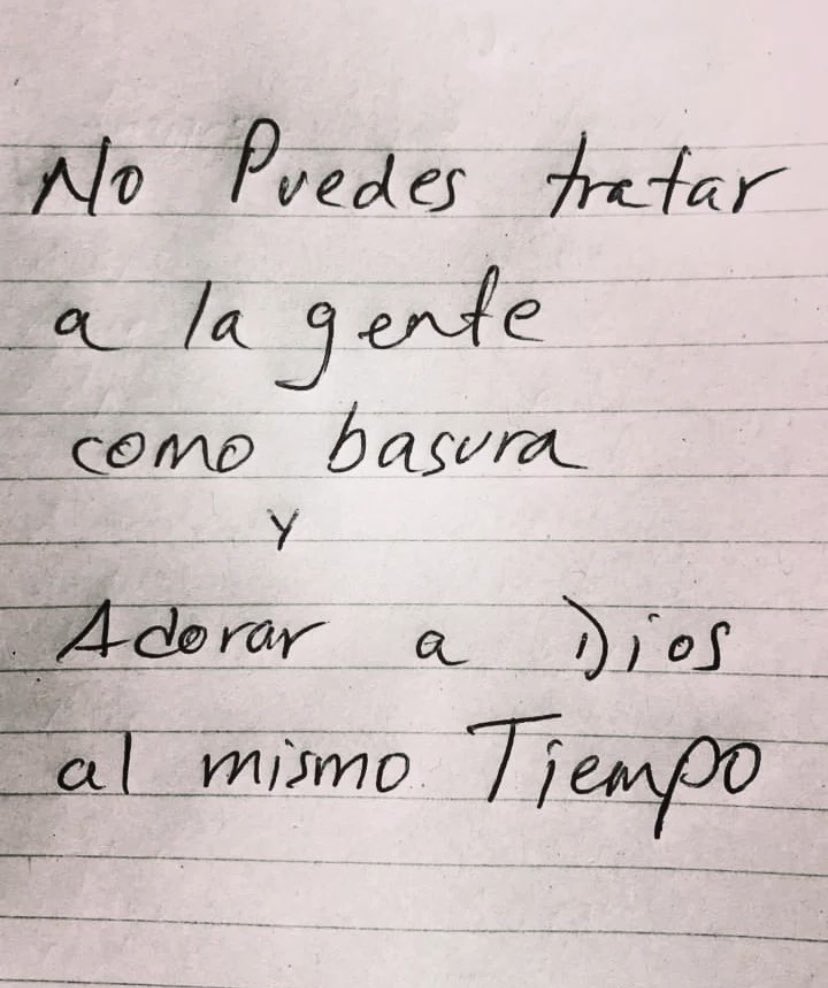 No Puedes tratar
a la gente
como basura
y
Adorar a Dios
al mismo Tiempo